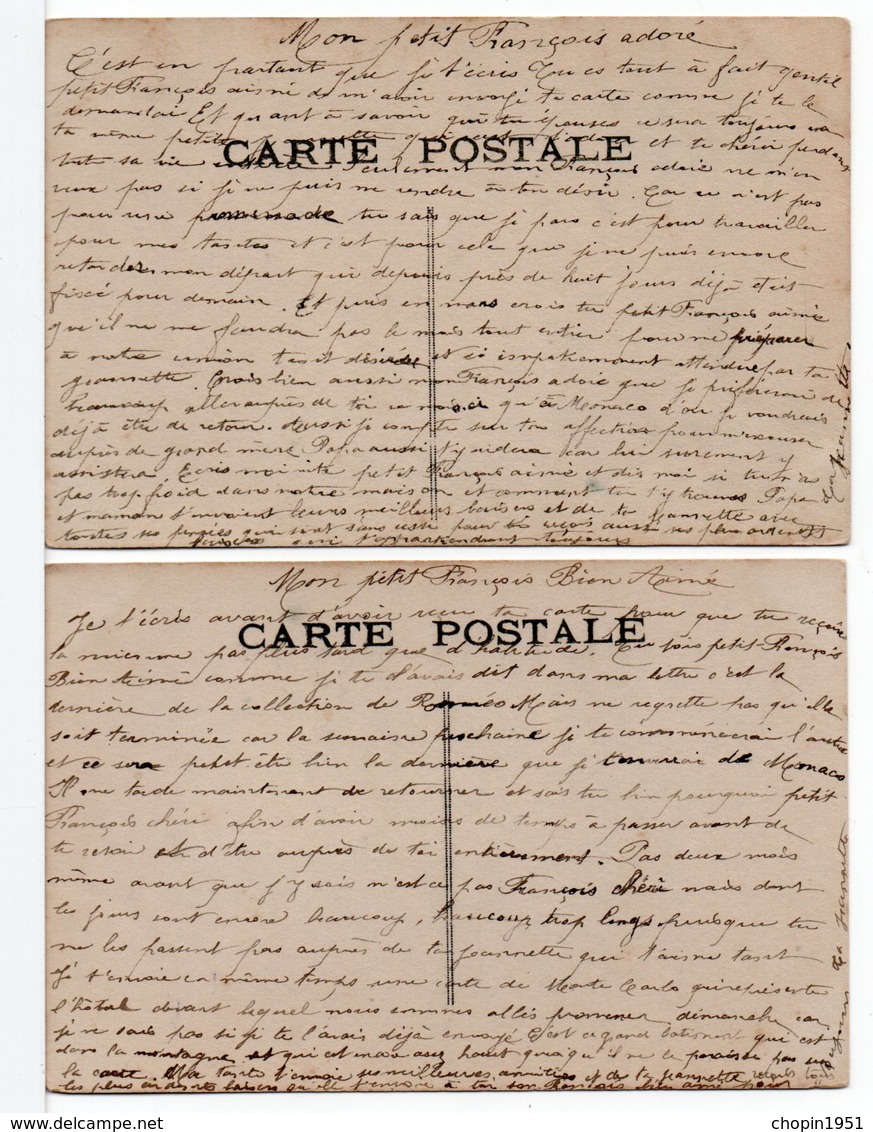 Mon petit François adoré
C'est en partant que je t'écris Tu es tout à fait gentil
petit François aimé de m'avoir envoyé ta carte comme je te le
demandai Et quant à savoir que tu épouses ce sera toujours
ta petite et te chérir pendant
CARTE POSTALE
toute sa vie Seulement mon François adoré ne m'en
veux pas si je ne puis me rendre à ton désir. Car ce n'est pas
pour une promenade tu sais que je pars c'est pour travailler
pour mes tantes et c'est pour cela que je ne puis encore
retarder mon départ qui depuis près de huit jours déjà était
fixé pour demain. Et puis en mars crois tu petit François aimé
qu'il ne me faudra pas le mois tout entier pour me préparer
à notre union tant désirée et si impatiemment attendue par ta
Jeannette. Crois bien aussi mon François adoré que je préférerai de
beaucoup aller auprès de toi ce mois ci qu'à Monaco d'où je voudrais
déjà être de retour. Aussi je compte sur ton affection pour m'excuser
auprès de grand mère Papa aussi t'y aidera car lui surement y
assistera Ecris moi vite petit François aimé et dis moi si tu n'a
pas trop froid dans notre maison et comment tu t'y trouves Papa
et maman t'envoient leurs meilleurs baisers et de ta Jeannette avec
toutes ses pensées qui sont sans cesse pour toi reçois aussi ses plus ardents
baisers qui t'appartiendront toujours
ta Jeannette
Mon petit François Bien Aimé
Je t'écris avant d'avoir reçu ta carte pour que tu reçoive
CARTE POSTALE
la mienne pas plus tard que d'habitude. Tu vois petit François
Bien Aimé comme je te l'avais dit dans ma lettre c'est la
dernière de la collection de Roméo Mais ne regrette pas qu'elle
soit terminée car la semaine prochaine je te commencerai l'autre
et ce sera petit être bien la dernière que je t'enverrai de Monaco
Il me tarde maintenant de retourner et sais tu bien pourquoi petit
François chéri afin d'avoir moins de temps à passer avant de
te revoir et d'être auprès de toi entièrement. Pas deux mois
même avant que j'y sois n'est ce pas François chéri mais dont
les jours sont encore beaucoup, beaucoup trop longs puisque tu
ne les passent pas auprès de ta Jeannette qui t'aime tant
Je t'envoie en même temps une carte de Monte Carlo qui représente
l'hôtel devant lequel nous sommes allés promener dimanche car
je ne sais pas si je te l'avais déjà envoyé C'est ce grand batiment qui est
dans la montagne et qui est encore assez haut quoiqu'il ne le paraisse pas sur
la carte. Ma tante t'envoie ses meilleures amitiés et de ta Jeannette reçois
les plus ardents baisers qu'elle t'envoie à toi son François bien aimé pour
toujours Ta Jeannette
chopin1951
www.delcampe.net